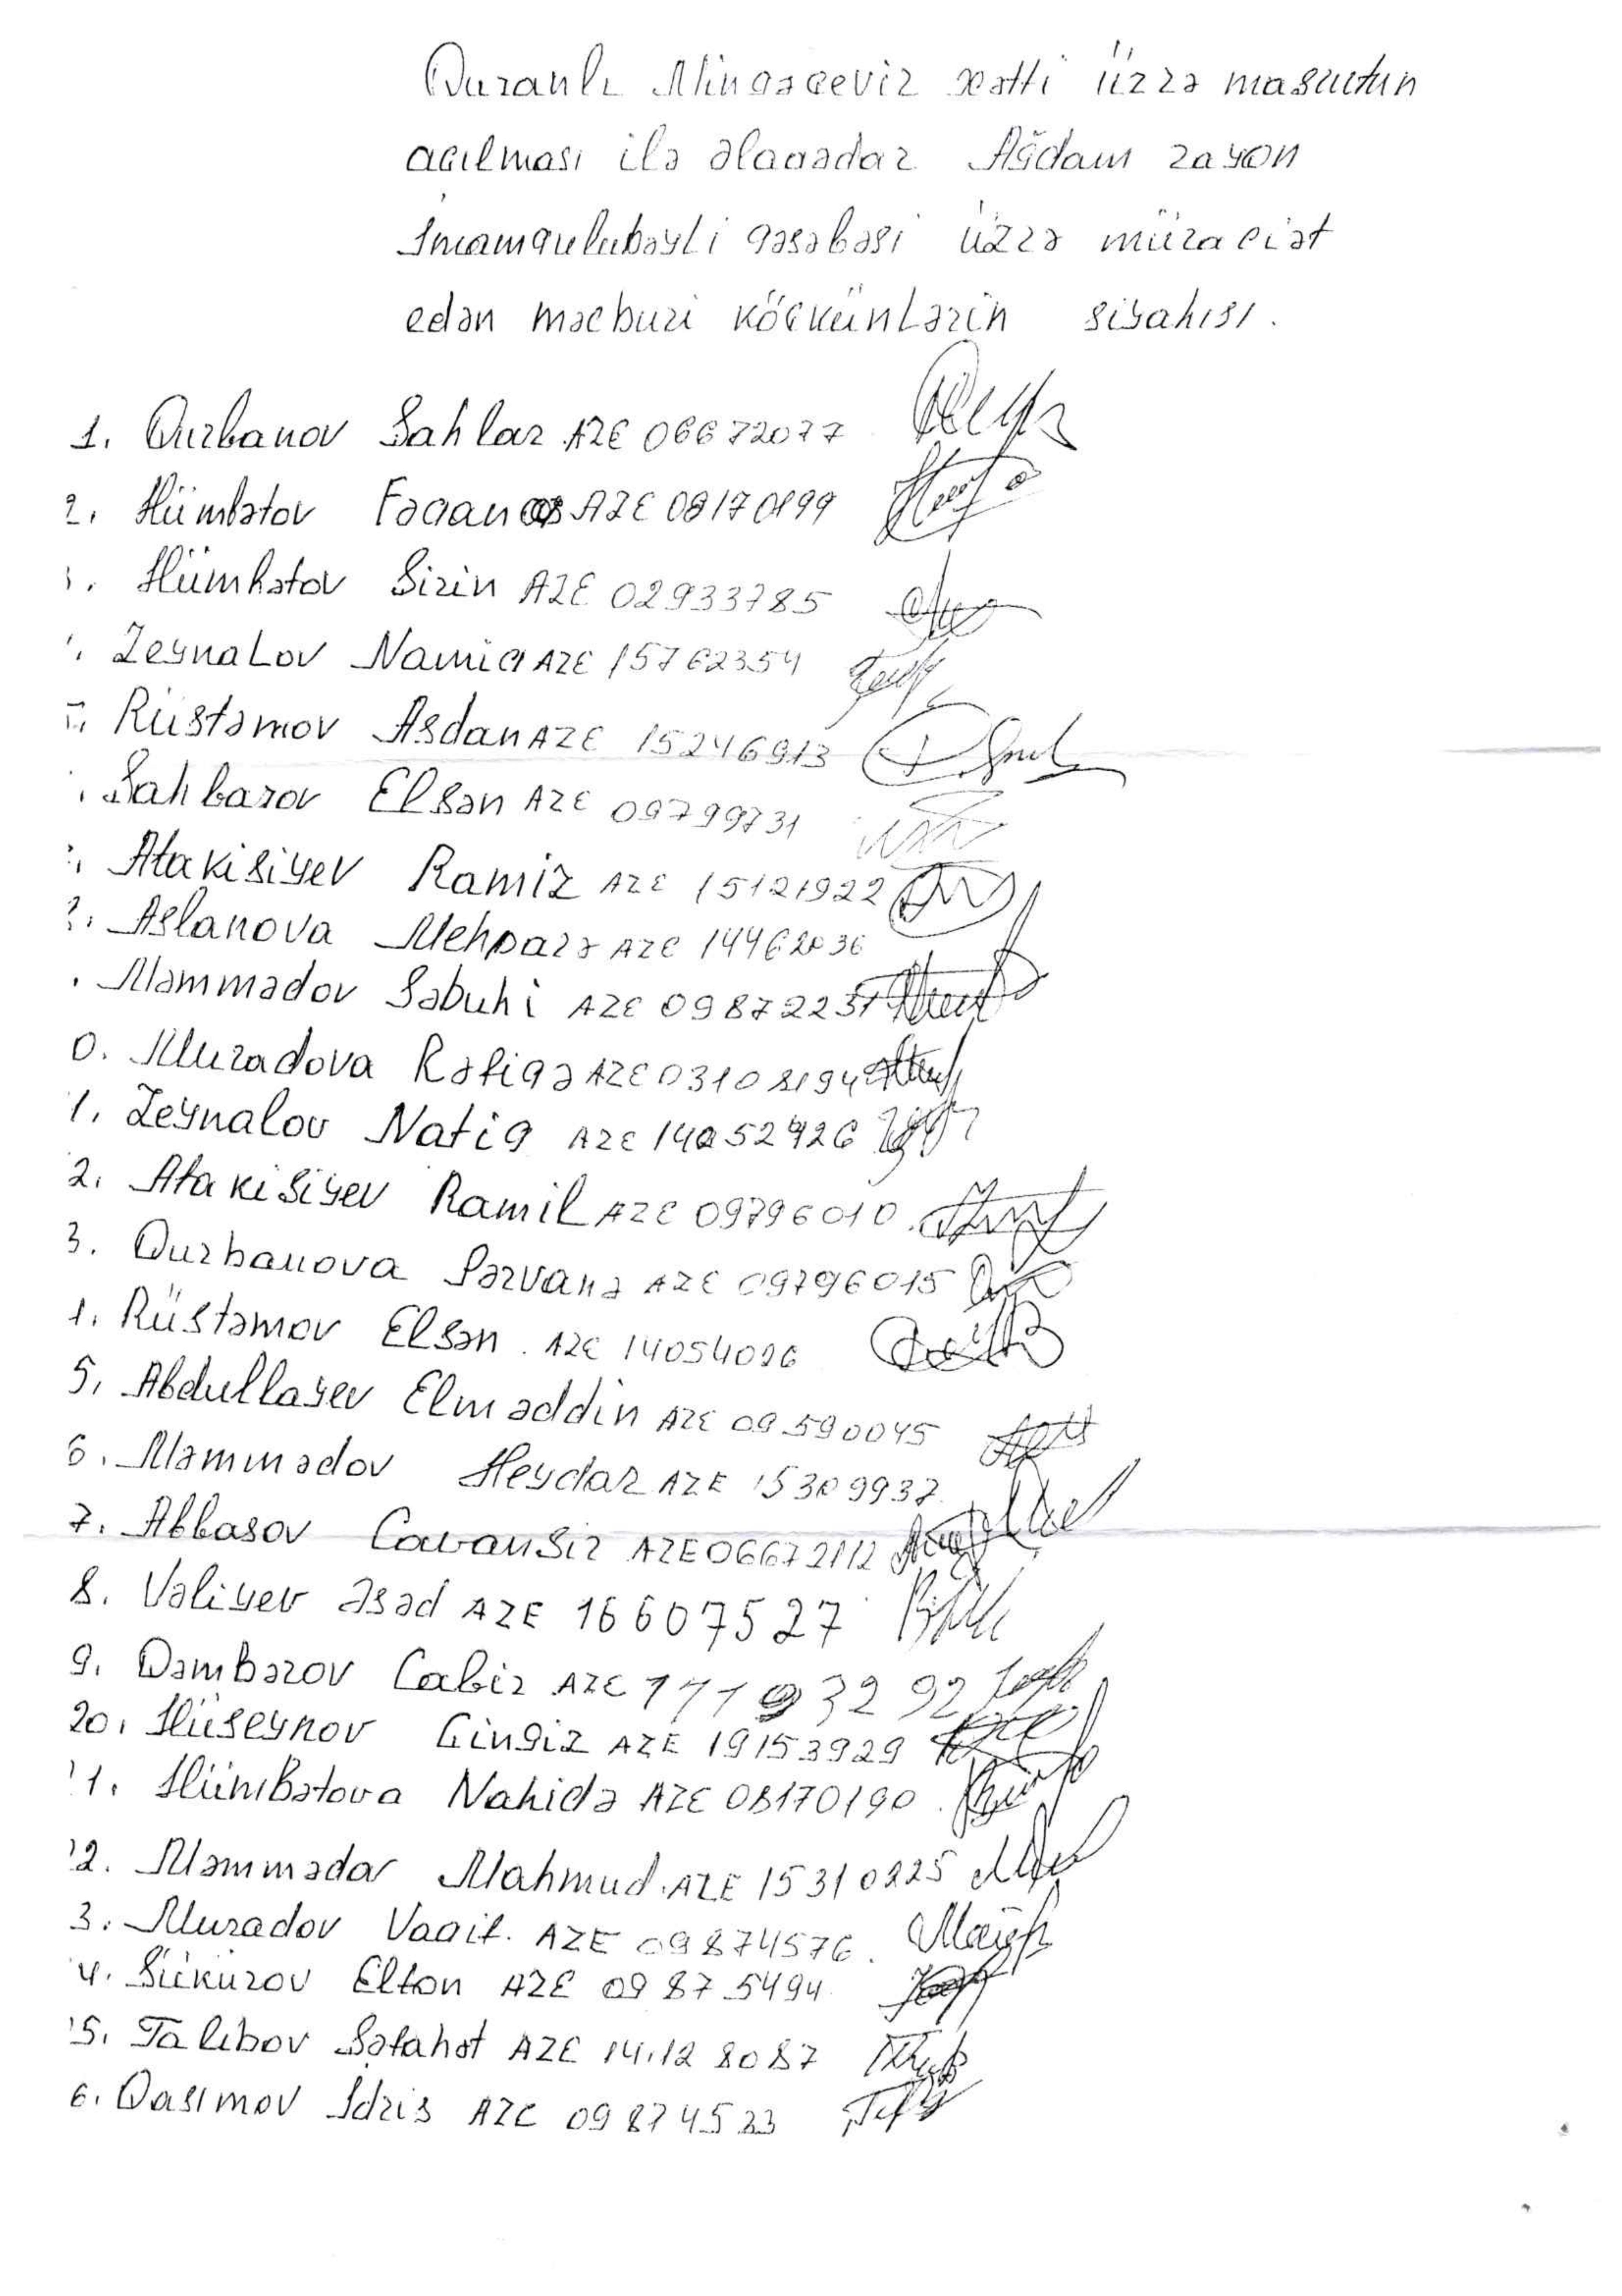 Quzanlı Mingəçevir xətti üzrə maşrutun
açılması ilə əlaqədar Ağdam rayon
İmamqulubəyli qəsəbəsi üzrə müraciət
edən məcburi köçkünlərin siyahısı.
1. Qurbanov Sahlar AZE 06672077
2. Hümbətov Fəqan AZE 08170199
Hümbətov Şirin AZE 02933785
Zeynalov Namiq AZE 15762354
Rüstəmov Asdan AZE 15246913
Şahbazov Elşən AZE 09799731
Atakişiyev Ramiz AZE 15121922
Aslanova Mehparə AZE 14462036
Məmmədov Səbuhi AZE 09872231
0. Muradova Rəfiqə AZE 03108194
1. Zeynalov Natiq AZE 14052926
2. Atakişiyev Ramil AZE 09796010
3. Qurbanova Pərvanə AZE 09796015
Rüstəmov Elşən. AZE 14054026
5. Abdullayev Elməddin AZE 09590045
6. Məmmədov Heydar AZE 15309937
7. Abbasov Cavanşir AZE 06672112
8. Vəliyev Əsəd AZE 16607527
9. Qəmbərov Cabir AZE
20. Hüseynov Çingiz AZE 19153929
1. Hümbətova Nahidə AZE 08170190
2. Məmmədov Mahmud. AZE 15310225
3. Muradov Vaqif. AZE 09874576.
4. Şükürov Elton AZE 09875494
5. Talıbov Səfahət AZE 14128087
6. Qasımov İdris AZE 09874533